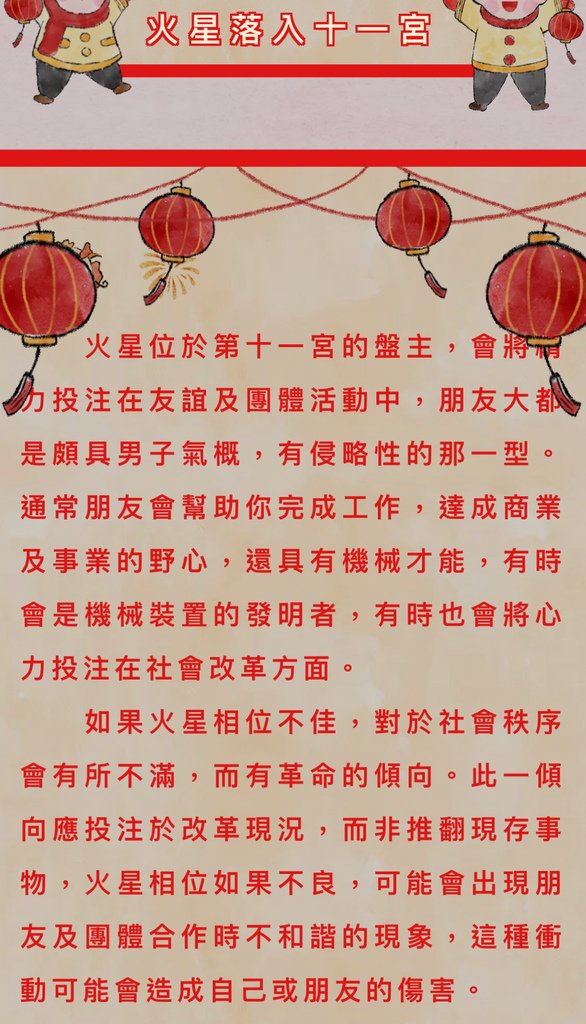 火星落入十一宮
火星位於第十一宮的盤主，會將精
力投注在友誼及團體活動中，朋友大都
是頗具男子氣概，有侵略性的那一型。
通常朋友會幫助你完成工作，達成商業
及事業的野心，還具有機械才能，有時
會是機械裝置的發明者，有時也會將心
力投注在社會改革方面。
如果火星相位不佳，對於社會秩序
會有所不滿，而有革命的傾向。此一傾
向應投注於改革現況，而非推翻現存事
物，火星相位如果不良，可能會出現朋
友及團體合作時不和諧的現象，這種衝
動可能會造成自己或朋友的傷害。